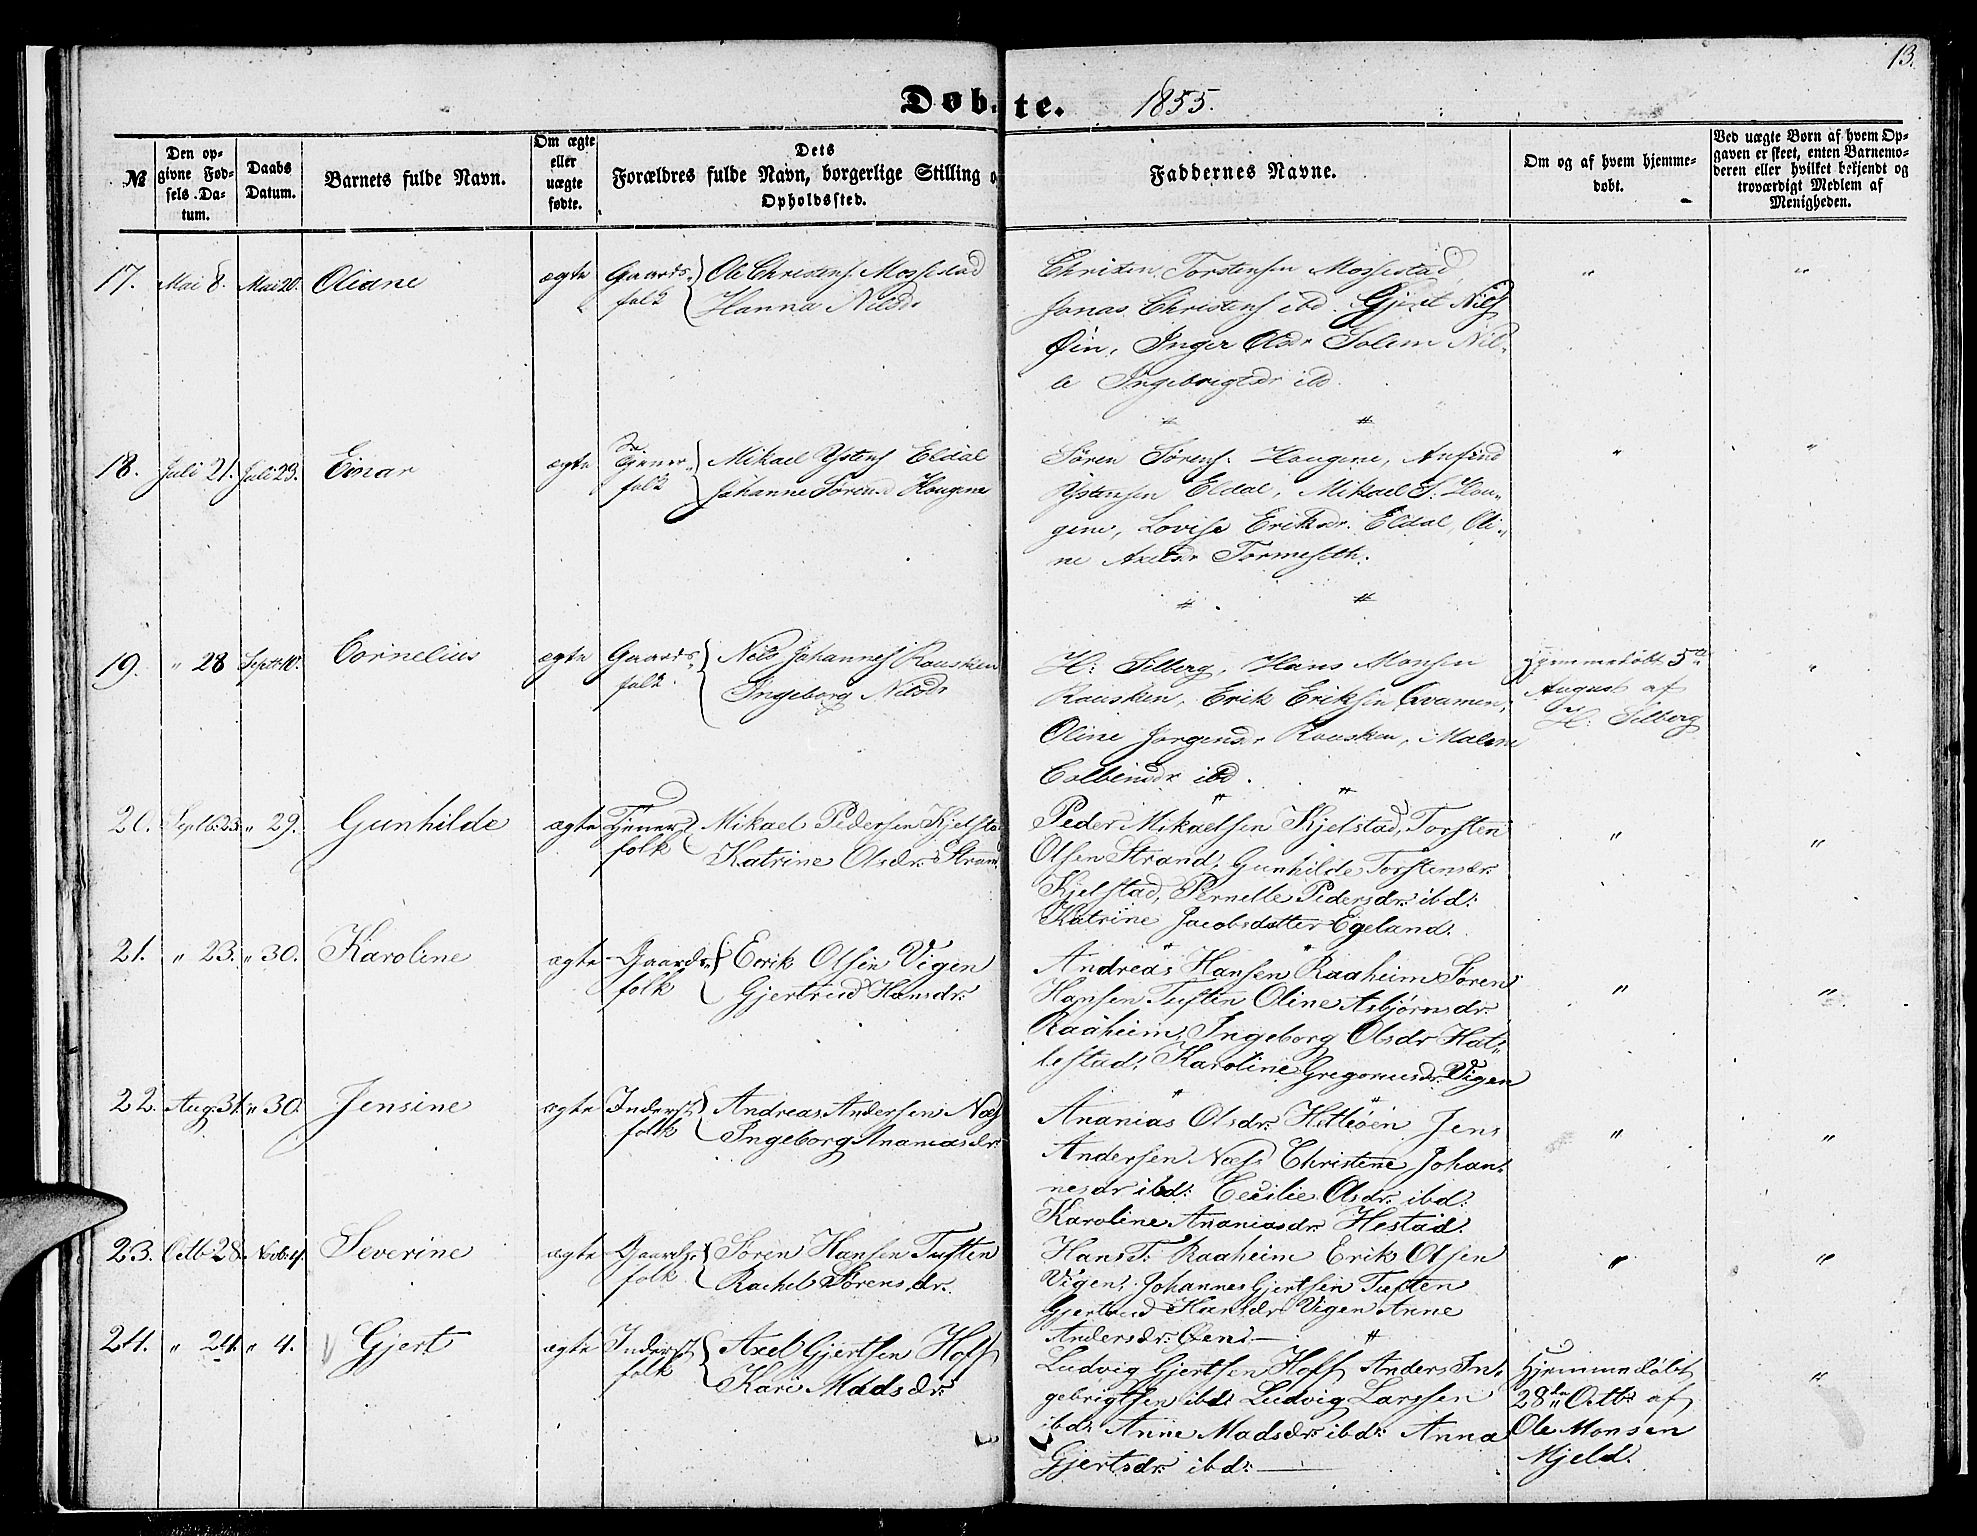 13.
Døbte. 1855.
№
Den opgivne Fødsels-Datum.
Daabs Datum.
Barnets fulde Navn.
Om ægte eller uægte fødte.
Dets Forældres fulde Navn, borgerlige Stilling o Opholdssted.
Faddernes Navne.
Om og af hvem hjemmedøbt.
Ved uægte Børn af hvem Opgaven er skeet, enten Barnemoderen eller hvilket bekjendt og troværdigt Medlem af Menigheden.
17. Mai 8. Mai 20. Oliane ægte Gaards- Ole Christens. Mossestad
folk Hanna Nilsdr
Christen Torstensen Mossestad
Jonas Christens ibd. Gjert Nils
Øin, Inger Olsdr Solem Nil-
le Ingebrigtsdr ibd.
" "
18. Juli 21. Juli 29. Einar ægte Tjener- Mikael Ystens Eldal
folk Johanne Sørensd Hougene
Søren Sørens. Hougene, Anfind
Ystensen Eldal, Mikael S. Hou-
gene, Lovise Eriksdr. Eldal, Oli-
ne Axelsdr Tormeseth.
" "
19. " 28 Septr 10. Cornelius ægte Gaards- Nils Johannes Rausken
folk. Ingeborg Nilsdr
H: Silberg, Hans Monsen
Rausken, Erik Eriksen Qvamen,
Oline Jørgensdr Rausken, Malene
Colbeinsdr ibd.
Hjemmedøbt 5te
August af
H. Silberg
"
20. Septb. 23. " 29. Gunhilde ægte Tjener Mikael Pedersen Kjelsta
folk Katrine Olsdr. Stran
Peder Mikaelsen Kjelstad, Torsten
Olsen Strand, Gunhilde Torstensdr.
Kjelstad, Pernelle Pedersdr. ibd:
Katrine Jacobsdatter Egeland.
" "
21. " 23. " 30. Karoline ægte Gaards- Eerik Olsen Vigen
folk Gjertrud Hansdr.
Andreas Hansen Raaheim Søren
Hansen Tuften Oline Asbjørnsdr.
Raaheim, Ingeborg Olsdr Hat-
lestad: Karoline Gregoriusdr. Vigen
" "
22. Aug. 31. " 30. Jensine ægte Inderst Andreas Andersen Næs
folk Ingeborg Ananiasdr.
Ananias Olsdr. Hitleøen Jens
Andersen Næss Christene Johan-
nesdr ibd: Cecilie Olsdr. ibd:
Karoline Ananiasdr. Hestad.
" "
23. Octb 28. Novb. 4. Severine ægte Gaards- Søren Hansen Tuften
folk Rachel Sørensdr.
Hans T. Raaheim Erik Olsen
Vigen, Johannes Gjertsen Tuften
Gjertrud Hansdr Vigen Anne
Andersdr: Øen. —
" "
24. " 24. " 4. Gjert ægte Inderst Axel Gjertsen Hoff
folk Kari Madsdr.
Ludvig Gjertsen Hoff Anders In-
gebrigtsen ibd: Ludvig Larssen
ibd: Anne Madsdr. ibd: Anna
Gjertsdr. ibd: —
Hjemmedøbt
28de Octb: af
Ole Monsen
Mjeld.
"